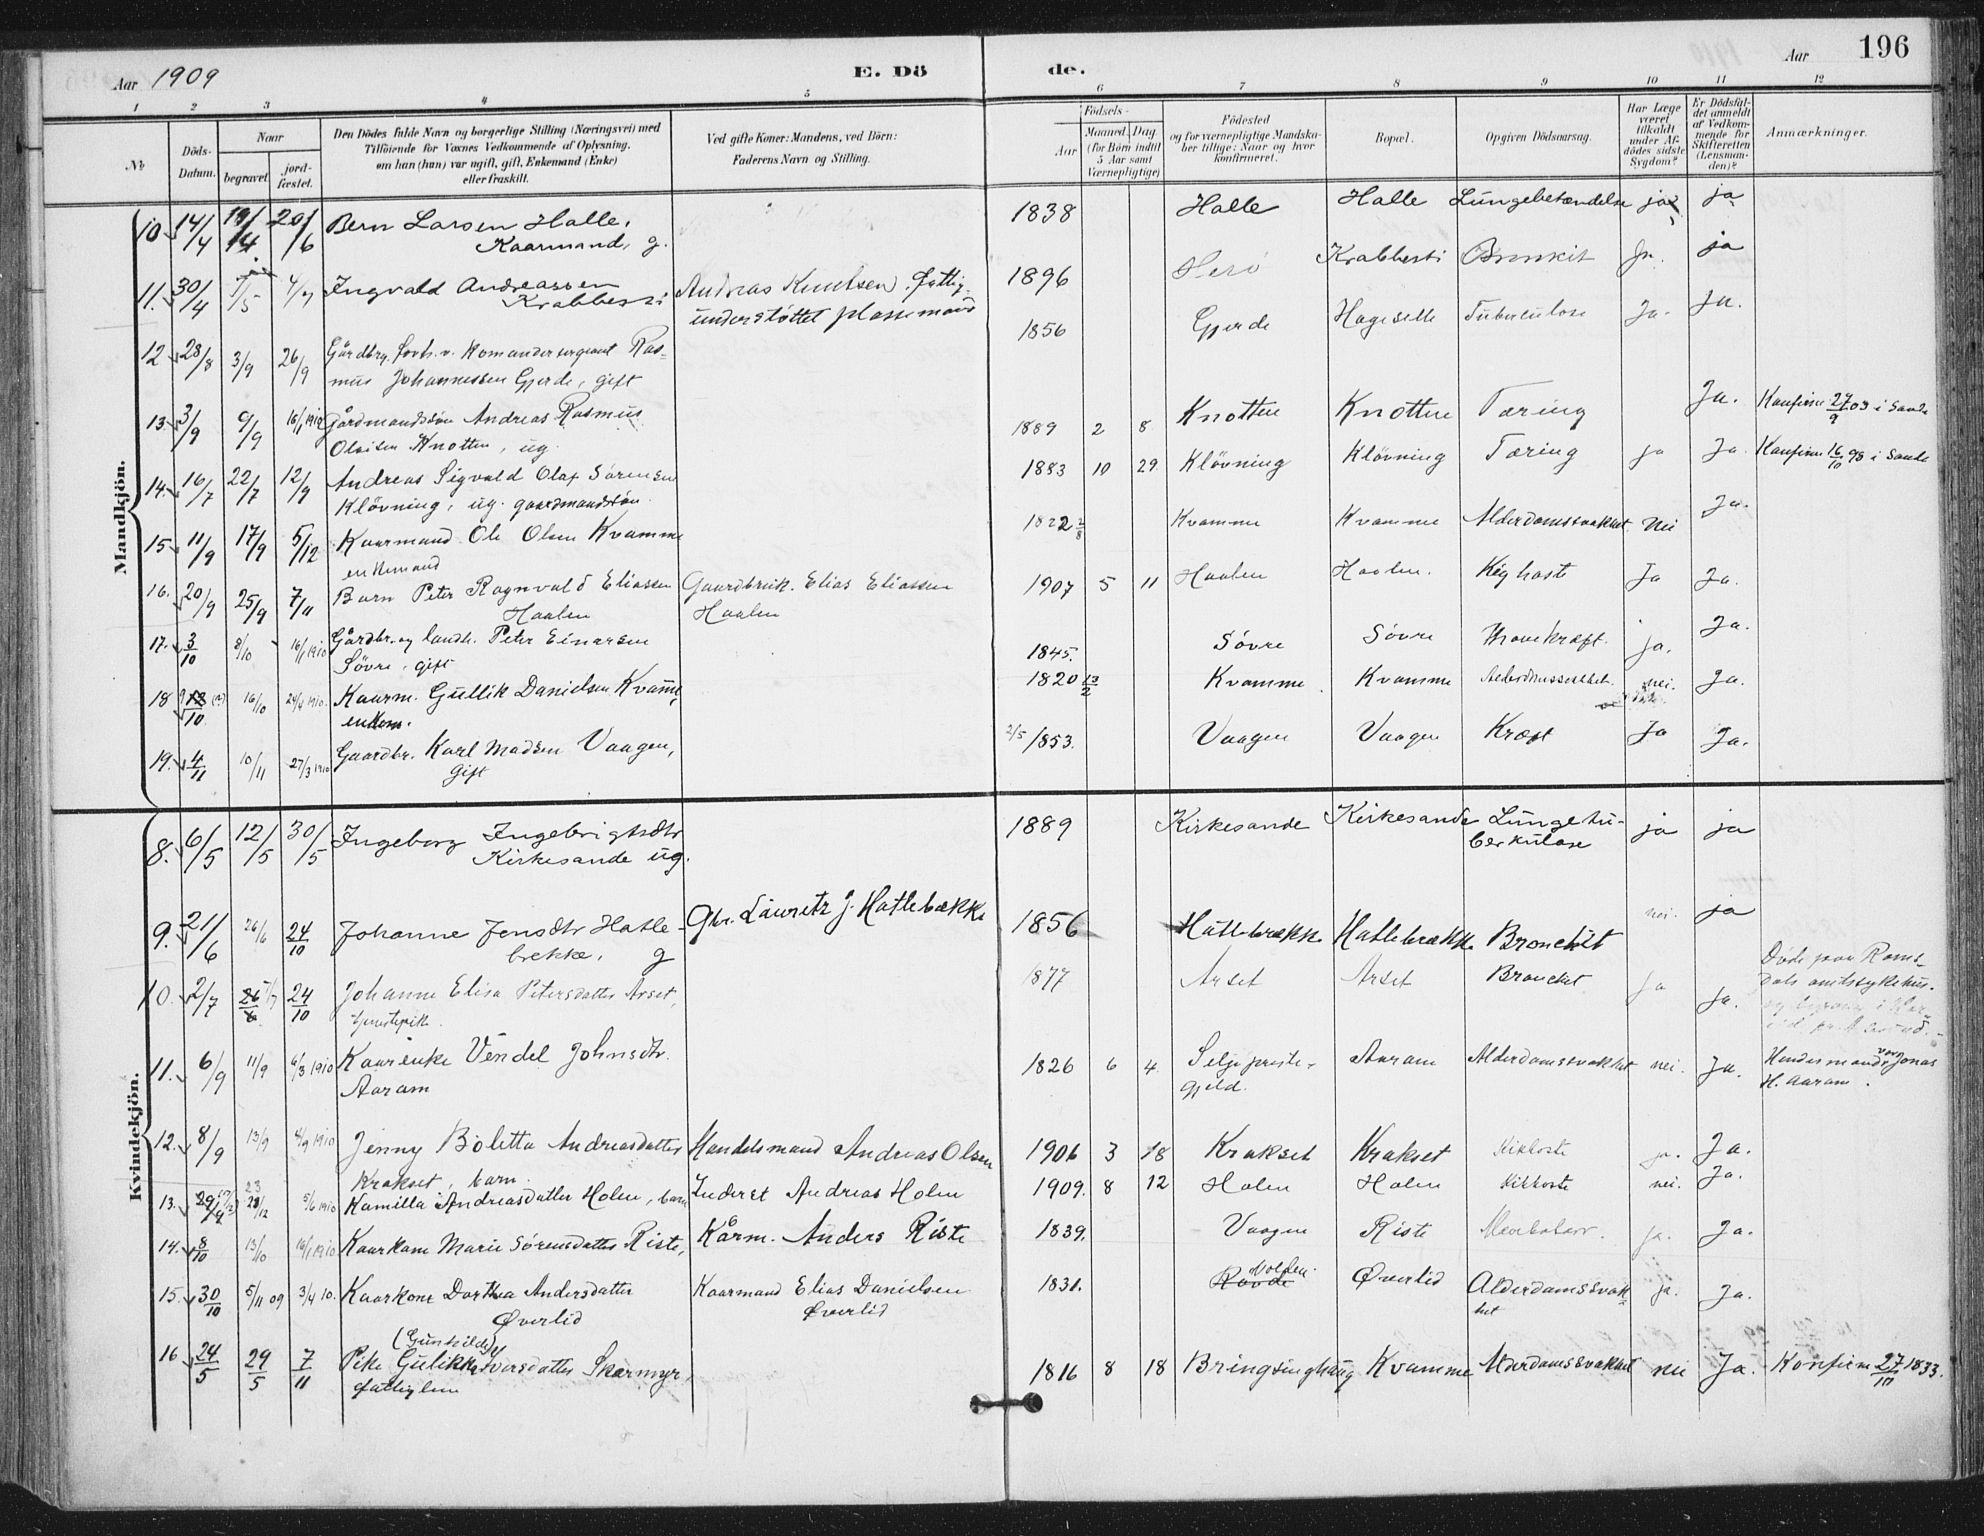 Aar 1909
E. Dö
de.
Aar 196
1 2 3 4 5 6 7 8 9 10 11 12
№
Döds-
Datum.
Naar
begravet
jord-
fæstet.
Den Dödes fulde Navn og borgerlige Stilling (Næringsvei) med
Tilföiende for Voxnes Vedkommende af Oplysning.
om han (hun) var ugift, gift, Enkemand (Enke)
eller fraskilt.
Ved gifte Koner: Mandens, ved Börn:
Faderens Navn og Stilling.
Födsels-
Aar
Maaned. Dag.
(for Börn indtil
5 Aar samt
Værnepligtige)
Födested
og for værnepligtige Mandska-
ber tillige: Naar og hvor
konfirmeret.
Bopæl.
Opgiven Dödsaarsag.
Har Læge
været
tilkaldt
under Af-
dödes sidste
Sygdom?
Er Dödsfal-
det anmeldt
af Vedkom-
mende for
Skifteretten
(Lensman-
den)?
Anmærkninger.
Mandkjön.
10 14/4 19/4 20/6 Bern Larsen Halle, 1838 Halle Halle Lungebetændelse ja ja
Kaarmand, g.
11. 30/4 7/5 4/7 Ingvald Andreassen Andreas Knutsen. fattig- 1896 Herö Krabbesti Bronkit Ja. ja
Krabbesti understöttet plassmand
12 28/8 3/9 26/9 Gårdbrg. forh. v. Komandersergeant Ras- 1856 Gjerde Hageselle Tuberculose Ja. Ja.
mus Johannessen Gjerde, gift
13. 3/9 9/9 16/1 1910 Gårdmandssön Andreas Rasmus 1889 2 8 Knotten Knotten Tæring Ja. Konfirm 27/9 03 i Sande
Olsisen Knotten, ug.
14. 16/7 22/7 12/9 Andreas Sigvald Olaf Sörensen 1883 10 29 Klövning Klövning Tæring ja Ja. Konfirm 16/10 98 i Sande
Klövning, ug. gaardmandssön.
15 11/9 17/9 5/12 Kaarmand Ole Olsen Kvamme 1822 2/8 Kvamme Kvamme Alderdomssvakhet Nei Ja.
enkemand
16. 20/9 25/9 7/11 Barn Peter Ragnvald Eliassen Gaardbruk. Elias Eliassen 1907 5 11 Haalen Haalen. Kighoste Ja Ja.
Haalen Haalen
17. 3/10 8/10 16/1 1910 Gårdbr. og landh. Peter Einarsen 1845. Sövre Sövre Mavekræft. ja. Ja.
Sövre, gift
18 13/10 16/10 24/4 1910. Kaarm. Gullik Danielsen Kvamme, 1820 13/2 Kvamme Kvamme nei. Ja.
enkem.
19. 4/11 10/11 27/3 1910 Gaardbr. Karl Madsen Vaagen, 2/5 1853. Vaagen Vaagen Kræft Ja Ja.
Gift
Kvindekjön.
8. 6/5 12/5 30/5 Ingeborg Ingebrigtsdtr 1889 Kirkesande Kirkesande Lungetu- ja ja
Kirkesande ug. berkulose
9. 21/6 26/6 24/10 Johanne Jensdtr Hatle- Gbr. Lauretz J. Hatlebække 1856 Hatlebrække Hatlebrække Bronchit nei. ja
brekke, g
10. 2/7 24/10 Johanne Elisa Petersdatter Aarset, 1877 Arset Arset Bronchit ja ja. Döde paa Roms-
tjenestepike. dals amtssykehus.
11. 6/9 11/9 6/3 1910 Kaarenke Vendel Johnsdtr. 1826 6 4. Selje preste- Aaram Alderdomssvakhet nei. Ja. Hendes mand var Jonas
Aaram gjeld. H. Aaram.
12. 8/9 13/9 4/9 1910 Jenny Boletta Andreasdatter Handelsmand Andreas Olsen 1906 3 18 Krakset Krakset Kikhoste ja. Ja.
Krakset, barn.
13. 23/12 5/6 1910 Kamilla Andreasdatter Holen, barn Inderst Andreas Holen 1909. 8 12 Holen Holen Kikhoste nei. Ja.
14. 8/10 13/10 16/1 1910 Kaarkone Marie Sörensdatter Riste, Kårm. Anders Riste 1839. Vaagen Riste ja. Ja.
15. 30/10 5/11 09 3/4 10. Kaarkone Dorthea Andersdatter Kaarmand Elias Danielsen 1831. Rovde Volden. Øverlid Alderdomssvak- ja. Ja.
Øverlid Øverlid het
16 24/5 29/5 7/11 Pike Gulikka (Gunhilde) Iversdatter Skarmyr, 1816 8 18 Bringsinghaug Kvamme Alderdomssvakhet nei Ja. Konfirm 27/10 1833.
fattiglem